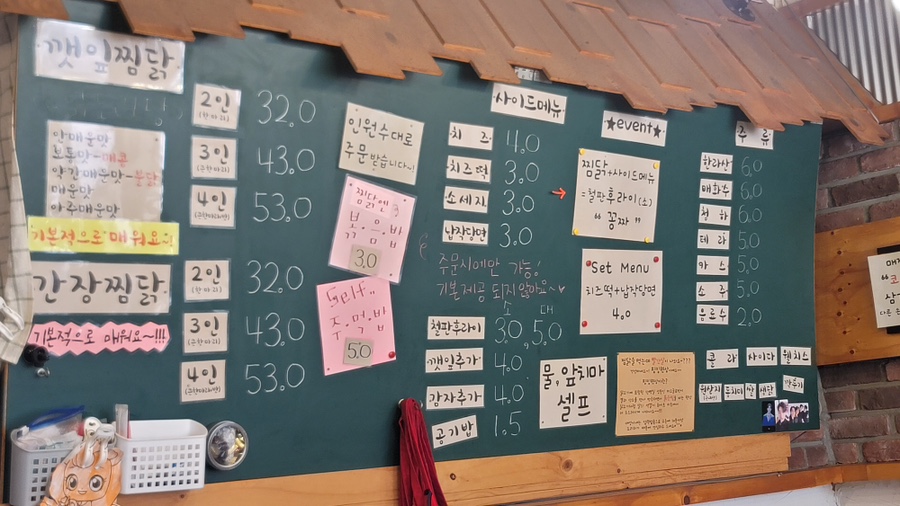 깻잎찜닭
안매운맛
보통맛-매콤
약간매운맛-불닭
매운맛
아주매운맛
기본적으로 매워요~!
2인
(한마리)
32.0
3인
43.0
4인
53.0
간장찜닭
기본적으로 매워요~!!!
2인
(한마리)
32.0
3인
43.0
4인
53.0
인원수대로
주문 받습니다~!
찜닭엔
볶음밥
3.0
Self..
주먹밥
5.0
사이드메뉴
치즈 4.0
치즈떡 3.0
소세지 3.0
납작당면 3.0
주문시에만 가능!
기본제공 되지 않아요~♥
소 대
철판후라이 3.0, 5.0
깻잎추가 4.0
감자추가 4.0
공기밥 1.5
★event★
찜닭+사이드메뉴
=철판후라이(소)
"꽁짜"
Set Menu
치즈떡+납작당면
4.0
물,앞치마
셀프
주류
한라산 6.0
매화수 6.0
청하 6.0
테라 5.0
카스 5.0
소주 5.0
음료수 2.0
콜라 사이다 웰치스